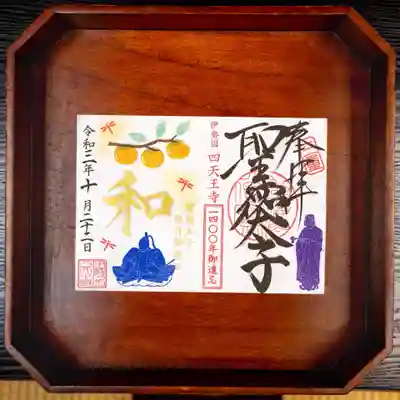 奉拝
聖徳太子
伊勢国 四天王寺
一四〇〇年御遠忌
和
令和三年十月二十二日